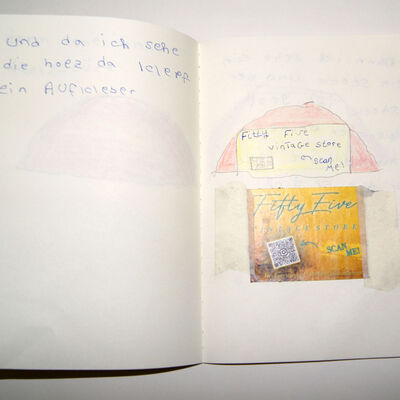 und da ich sehe
die hoez da klebt
ein Aufkleber
Fifty Five
vintage store
Scan
Me!
Fifty Five
VINTAGE STORE
SCAN
ME!